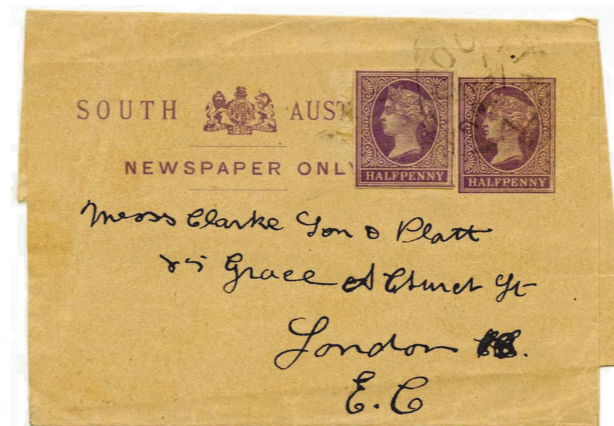 SOUTH AUST
NEWSPAPER ONLY
HALFPENNY
HALFPENNY
Messs Clarke Son & Platt
85 Grace Church St
London
E.C